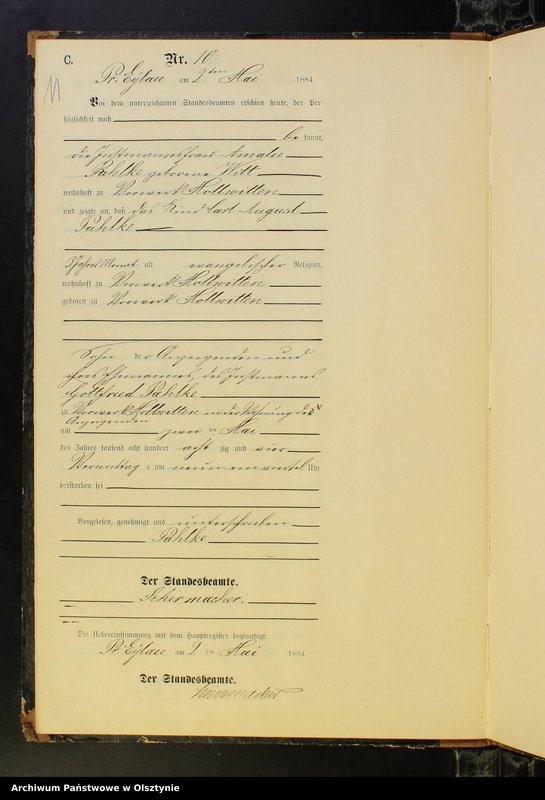 C.
Nr. 10
11
Pr. Eylau am 2ten Mai 1884.
Vor dem unterzeichneten Standesbeamten erschien heute, der Per-
sönlichkeit nach
be kannt,
die Instmannsfrau Amalie
Pahlke geborene Witt
wohnhaft zu Vorwerk Hollwitten
und zeigte an, daß das Kind Carl August
Pahlke
Monat alt evangelischer Religion,
wohnhaft zu Vorwerk Hollwitten
geboren zu Vorwerk Hollwitten
Sohn der Anzeigenden und
ihres Ehemannes, des Instmanns
Gottfried Pahlke
zu Vorwerk Hollwitten in der Wohnung der
Anzeigenden
am zwei ten Mai
des Jahres tausend acht hundert acht zig und vier
Vormittag s um neun ein viertel Uhr
verstorben sei
Vorgelesen, genehmigt und unterschrieben
Pahlke
Der Standesbeamte.
Schermacher.
Die Uebereinstimmung mit dem Hauptregister beglaubigt.
Pr. Eylau am 2 ten Mai 1884.
Der Standesbeamte.
Schermacher
Archiwum Państwowe w Olsztynie